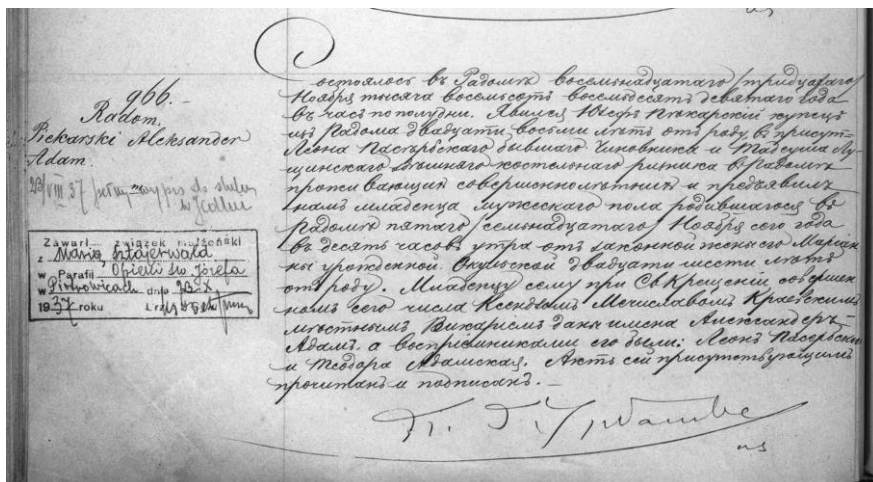 966.
Radom,
Piekarski Aleksander
Adam.
23/VIII 37 pełny wypis do ślubu
Zawarł związek małżeński
z Marią Sztajerwald
w Parafii Opieki św. Józefa
w Piotrowicach dnia
1937 roku
Состоялось въ Радомѣ восемьнадцатаго /тридцатаго/
Ноября тысяча восемьсотъ восемьдесятъ девятаго года
въ часъ по полудни. Явился Юсуфъ Пѣкарскій купецъ
изъ Радома двадцати восьми лѣтъ отъ роду, въ присут-
Леона Пасербскаго бывшаго Чиновника и Тадеуша Лу-
щинскаго здѣшняго костельнаго ризника въ Радомѣ
проживающихъ совершеннолѣтнихъ и предъявилъ
намъ младенца мужескаго пола родившагося въ
Радомѣ пятаго /семьнадцатаго/ Ноября сего года
въ десять часовъ утра отъ законной жены его Маріан-
ны урожденной Окульской двадцати шести лѣтъ
отъ роду. Младенцу сему при Св. Крещеніи, совершен-
номъ сего числа Ксендзомъ Мечиславомъ Краевскимъ
мѣстнымъ Викаріемъ даны имена Александеръ-
Адамъ, а воспріемниками его были: Леонъ Пасербскій
и Теодора Адамская. Актъ сей присутствующимъ
прочитанъ и подписанъ. —